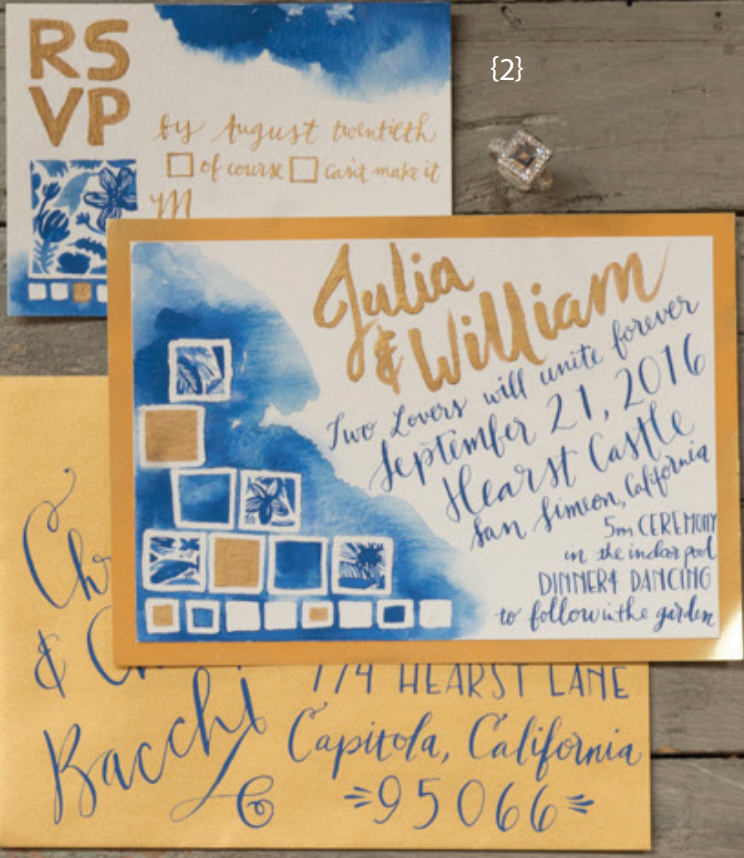 RS
VP
by August twentieth
of course can't make it
M
{2}
Julia
& William
Two Lovers will unite forever
September 21, 2016
Hearst Castle
San Simeon, California
5pm CEREMONY
in the indoor pool
DINNER & DANCING
to follow in the garden
Chr
& C
Bacchi
174 HEARST LANE
Capitola, California
95066